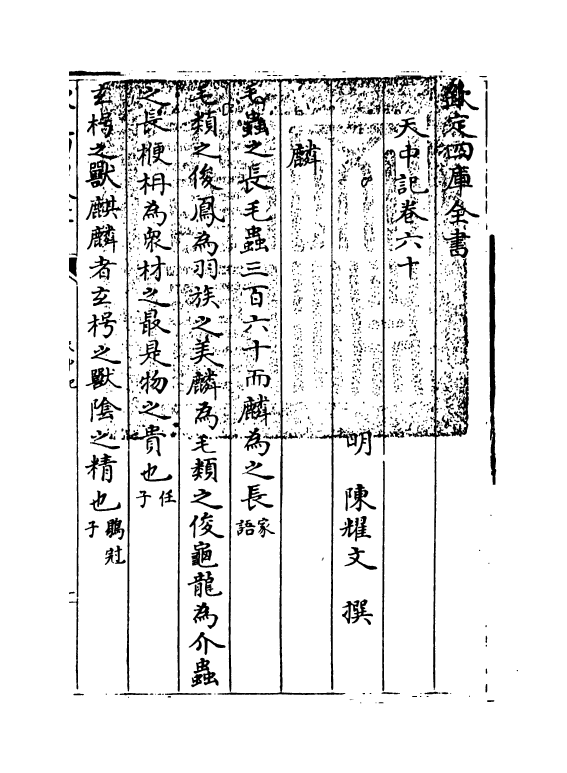 欽定四庫全書
天中記卷六十
明 陳耀文 撰
麟
毛蟲之長毛蟲三百六十而麟為之長家語
毛類之俊鳳為羽族之美麟為毛類之俊龜龍為介蟲
之長楩柟為衆材之最是物之貴也任子
玄枵之獸麒麟者玄枵之獸陰之精也鶡冠子